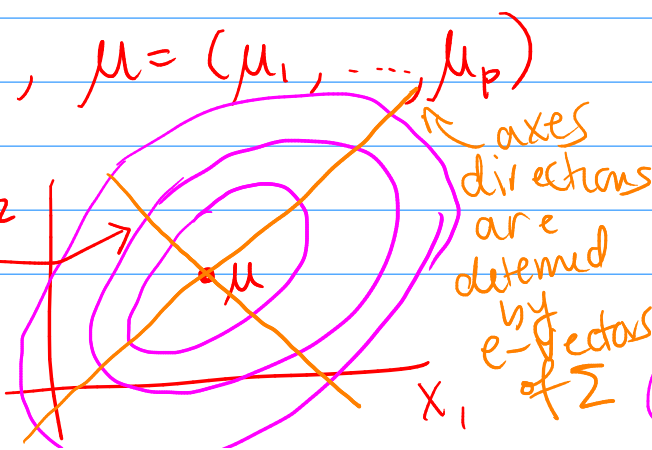 , μ = (μ₁, ..., μₚ)
axes
directions
are
detemed
by
e-vectors
of Σ
2
μ
x₁